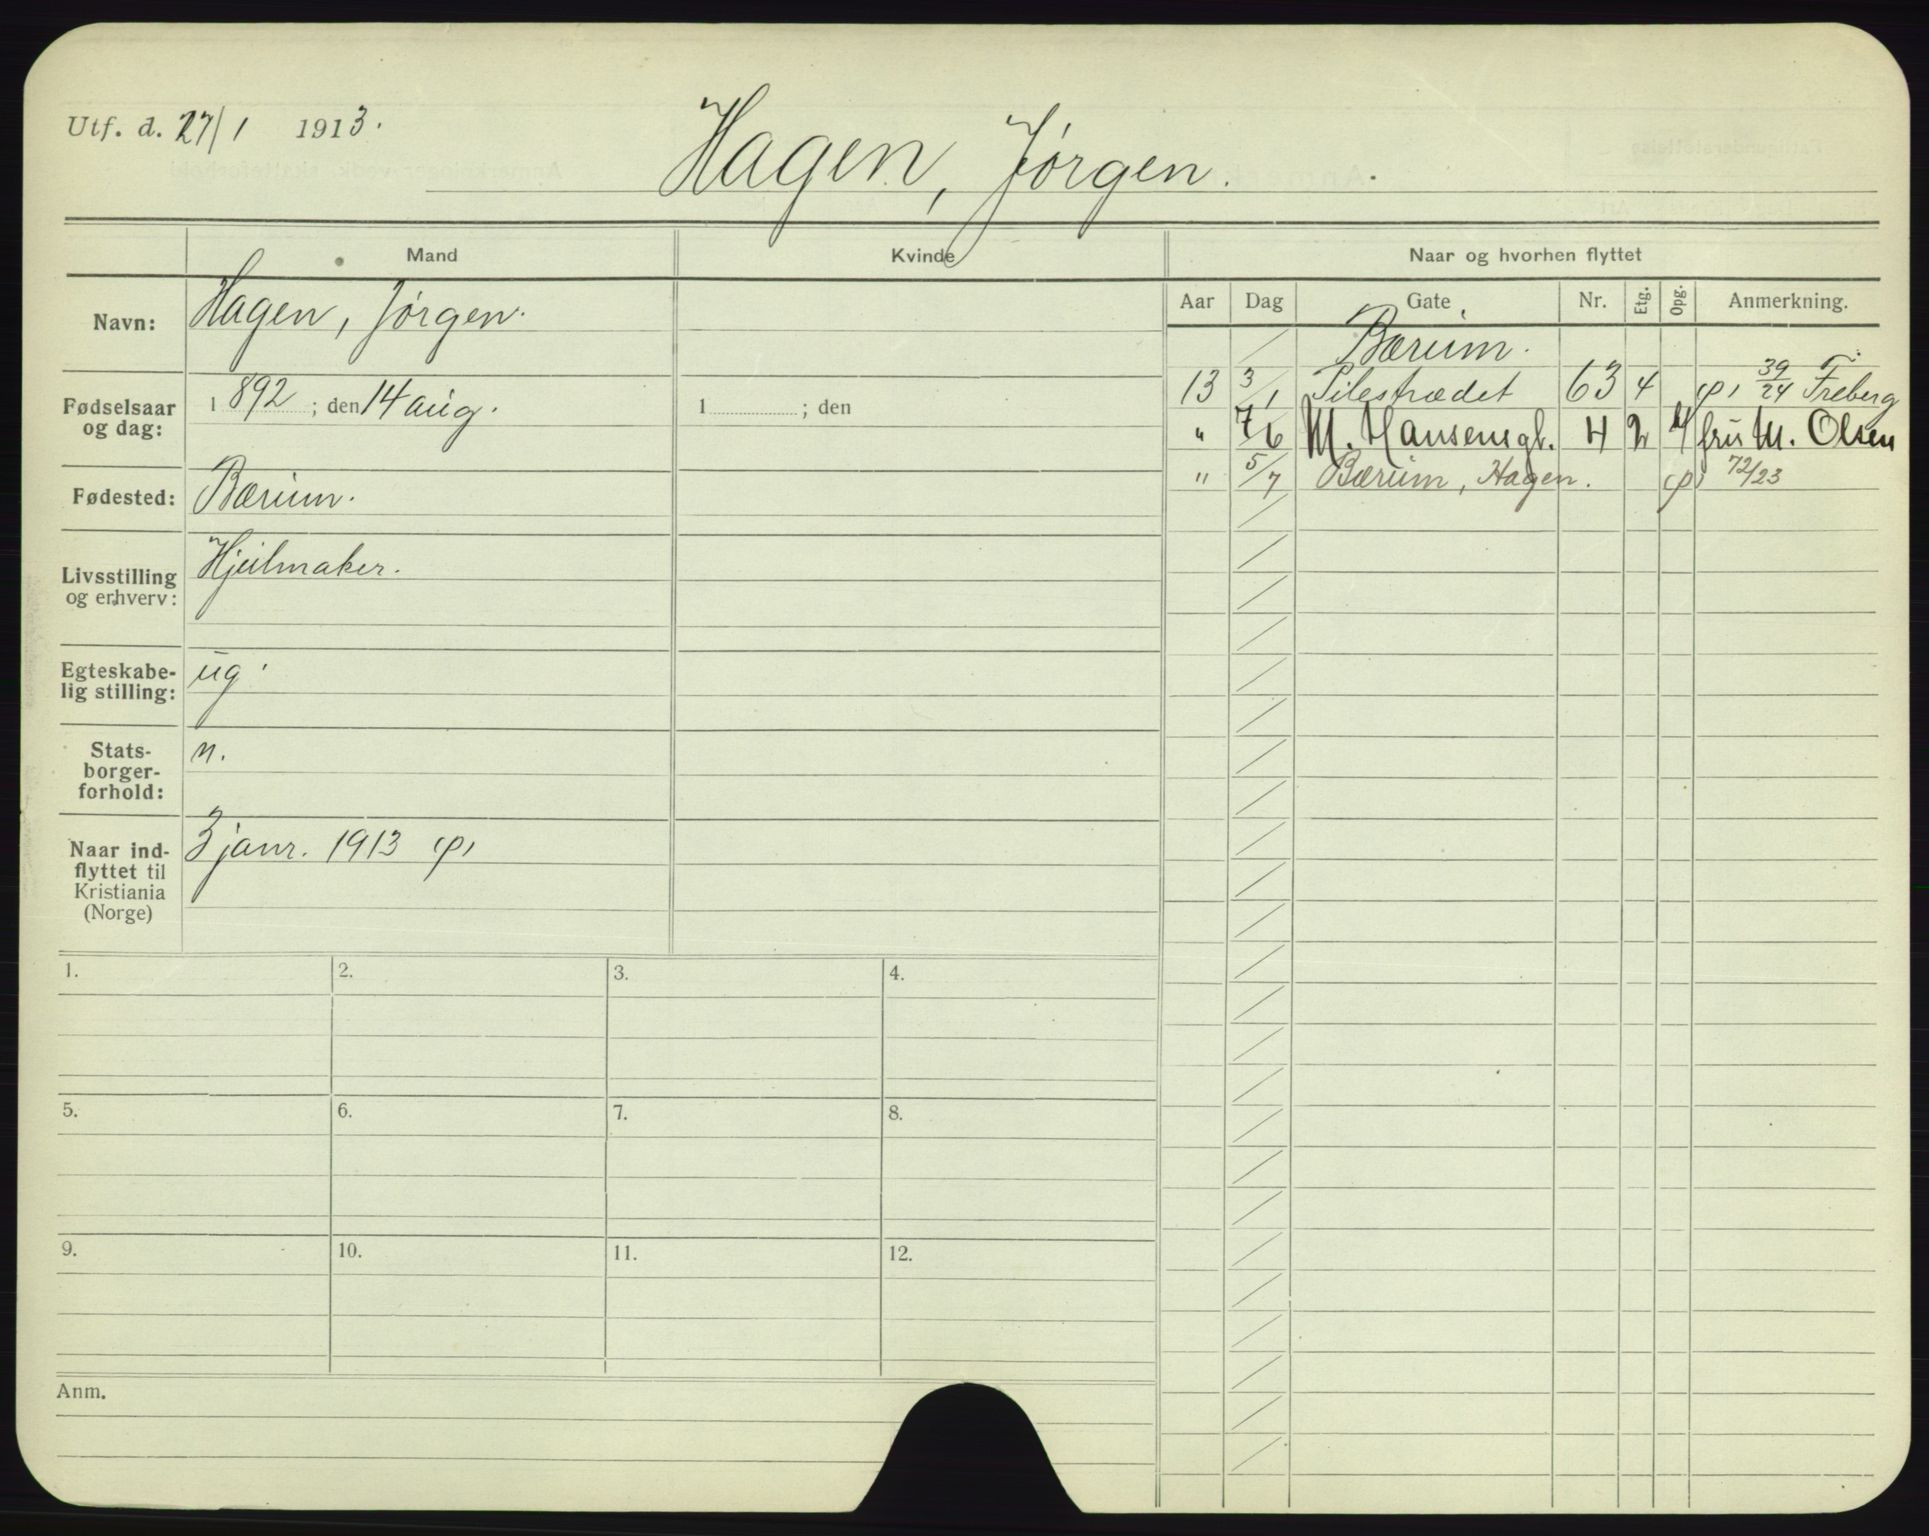 Utf. d. 27/1 1913.
Hagen, Jørgen.
Mand
Kvinde
Naar og hvorhen flyttet
Aar Dag Gate Nr. Etg. Opg. Anmerkning.
Navn: Hagen, Jørgen.
Fødselsaar og dag: 1892; den 14 aug. 1 ; den
Fødested: Bærum.
Livsstilling og erhverv: Hjulmaker.
Egteskabe-
lig stilling: ug.
Stats-
borger-
forhold: n.
Naar ind-
flyttet til
Kristiania
(Norge) 3 janr. 1913
Bærum.
13 3/1 Pilestrædet 63 4 39/24 Freberg
" 7/6 M. Hansensgt. 4 2 4 fru M. Olsen
" 5/7 Bærum, Hagen. 72/23
1. 2. 3. 4.
5. 6. 7. 8.
9. 10. 11. 12.
Anm.